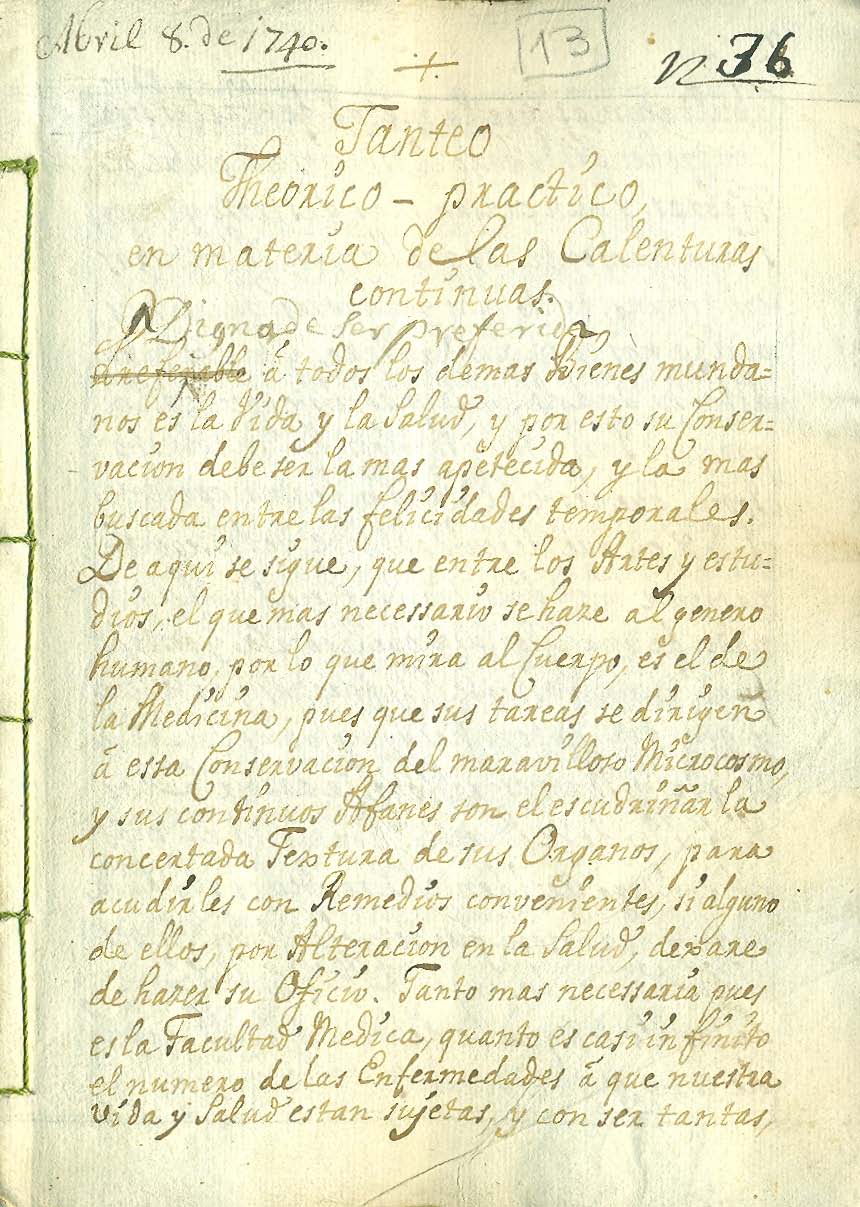 Abril 8. de 1740.
+
13
N 36
Tanteo
Theorico - practico,
en materia de las Calenturas
continuas.
Digna de ser preferida
preferible à todos los demas Bienes munda=
nos es la Vida y la Salud, y por esto su Conser=
vacion debe ser la mas apetecida, y la mas
buscada entre las felicidades temporales.
De aqui se sigue, que entre los Artes y estu=
dios, el que mas necessario se haze al genero
humano, por lo que mira al Cuerpo, es el de
la Medicina, pues que sus tareas se dirigen
à essa Conservacion del maravilloso Microcosmo,
y sus continuos Afanes son el escudriñar la
concertada Textura de sus Organos, para
acudirles con Remedios convenientes, si alguno
de ellos, por Alteracion en la Salud, dexare
de hazer su Oficio. Tanto mas necessaria pues
es la Facultad Medica, quanto es casi infinito
el numero de las Enfermedades à que nuestra
vida y Salud estan sujetas, y con ser tantas,